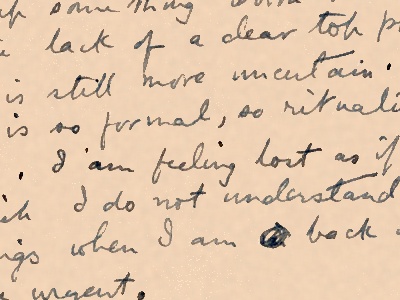 something
lack of a clear top
is still more uncertain.
is so formal, so rituali
. I am feeling lost as if
I do not understand
ngs when I am a back
urgent.